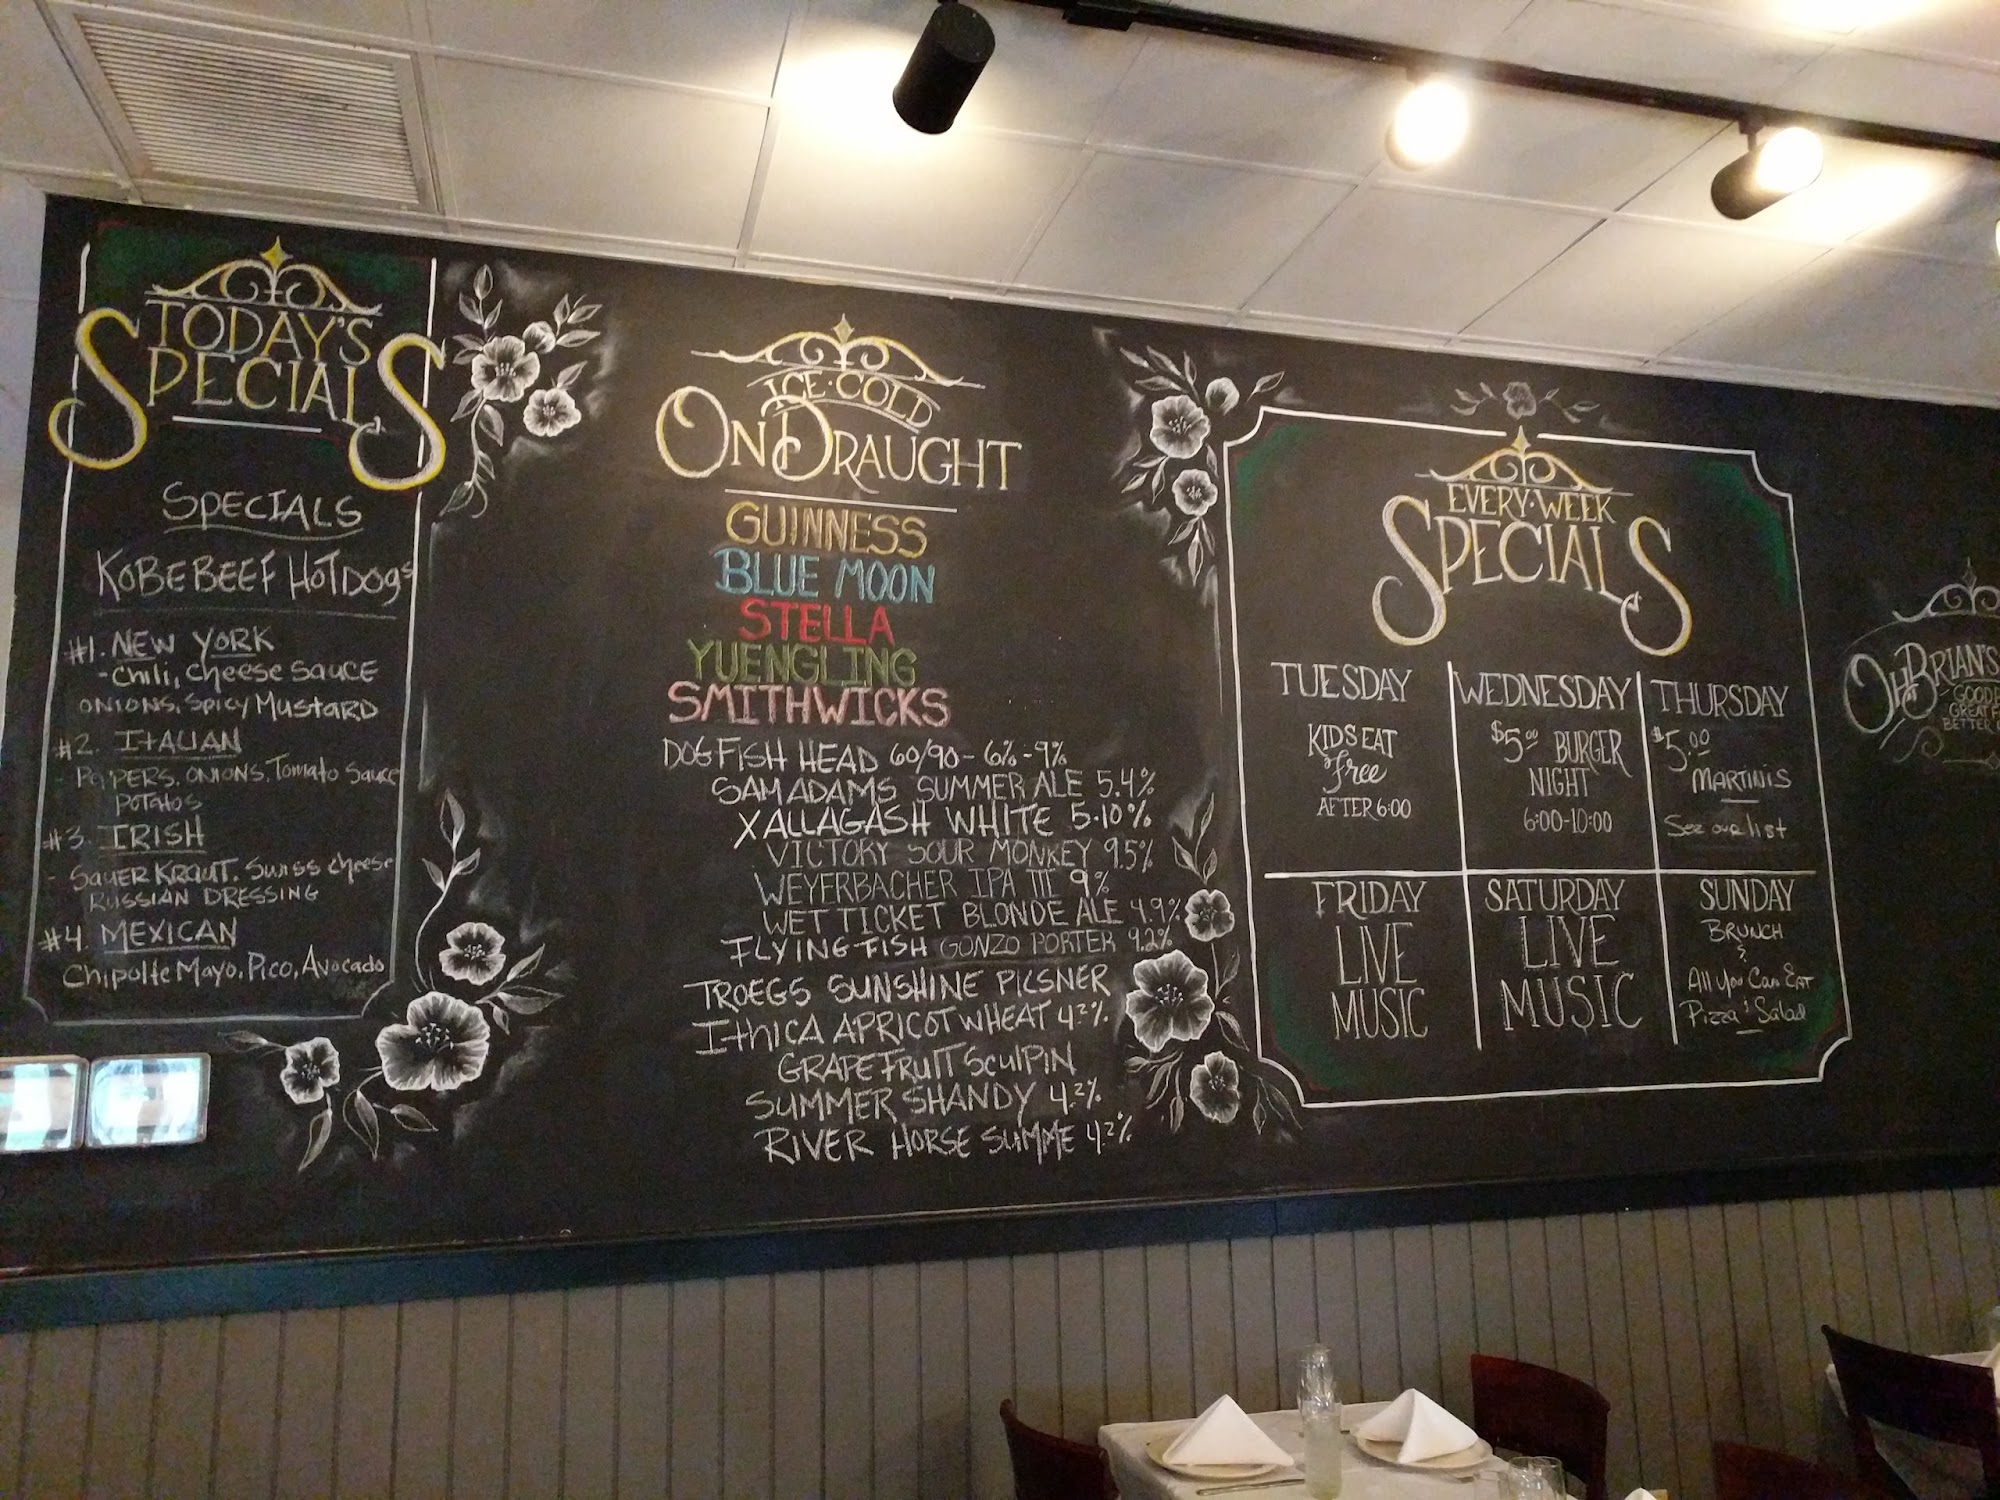 TODAY'S
SPECIALS
SPECIALS
KOBE BEEF HOT DOGS
#1. NEW YORK
- Chili, Cheese SAUCE
ONIONS, SPICY MUSTARD
#2. ITALIAN
- PEPPERS, ONIONS, Tomato Sauce
POTATOS
#3. IRISH
- SAUER KRAUT. Swiss cheese
RUSSIAN DRESSING
#4. MEXICAN
Chipolte Mayo, Pico, Avocado
ICE·COLD
ON DRAUGHT
GUINNESS
BLUE MOON
STELLA
YUENGLING
SMITHWICKS
DOG FISH HEAD 60/90 - 6% - 9%
SAM ADAMS SUMMER ALE 5.4%
XALLAGASH WHITE 5.10%
VICTORY SOUR MONKEY 9.5%
WEYERBACHER IPA III 9%
WET TICKET BLONDE ALE 4.9%
FLYING FISH GONZO PORTER 9.2%
TROEGS SUNSHINE PILSNER
IthICA APRICOT WHEAT 4.2%
GRAPEFRUIT SCULPIN
SUMMER SHANDY 4.2%
RIVER HORSE SUMME 4.2%
EVERY·WEEK
SPECIALS
TUESDAY
KIDS EAT
free
AFTER 6:00
WEDNESDAY
$5.00 BURGER
NIGHT
6:00-10:00
THURSDAY
$5.00
MARTINIS
See our list
FRIDAY
LIVE
MUSIC
SATURDAY
LIVE
MUSIC
SUNDAY
BRUNCH
&
All You Can EAT
Pizza & Salad
OH BRIAN'S
GOOD
GREAT
BETTER